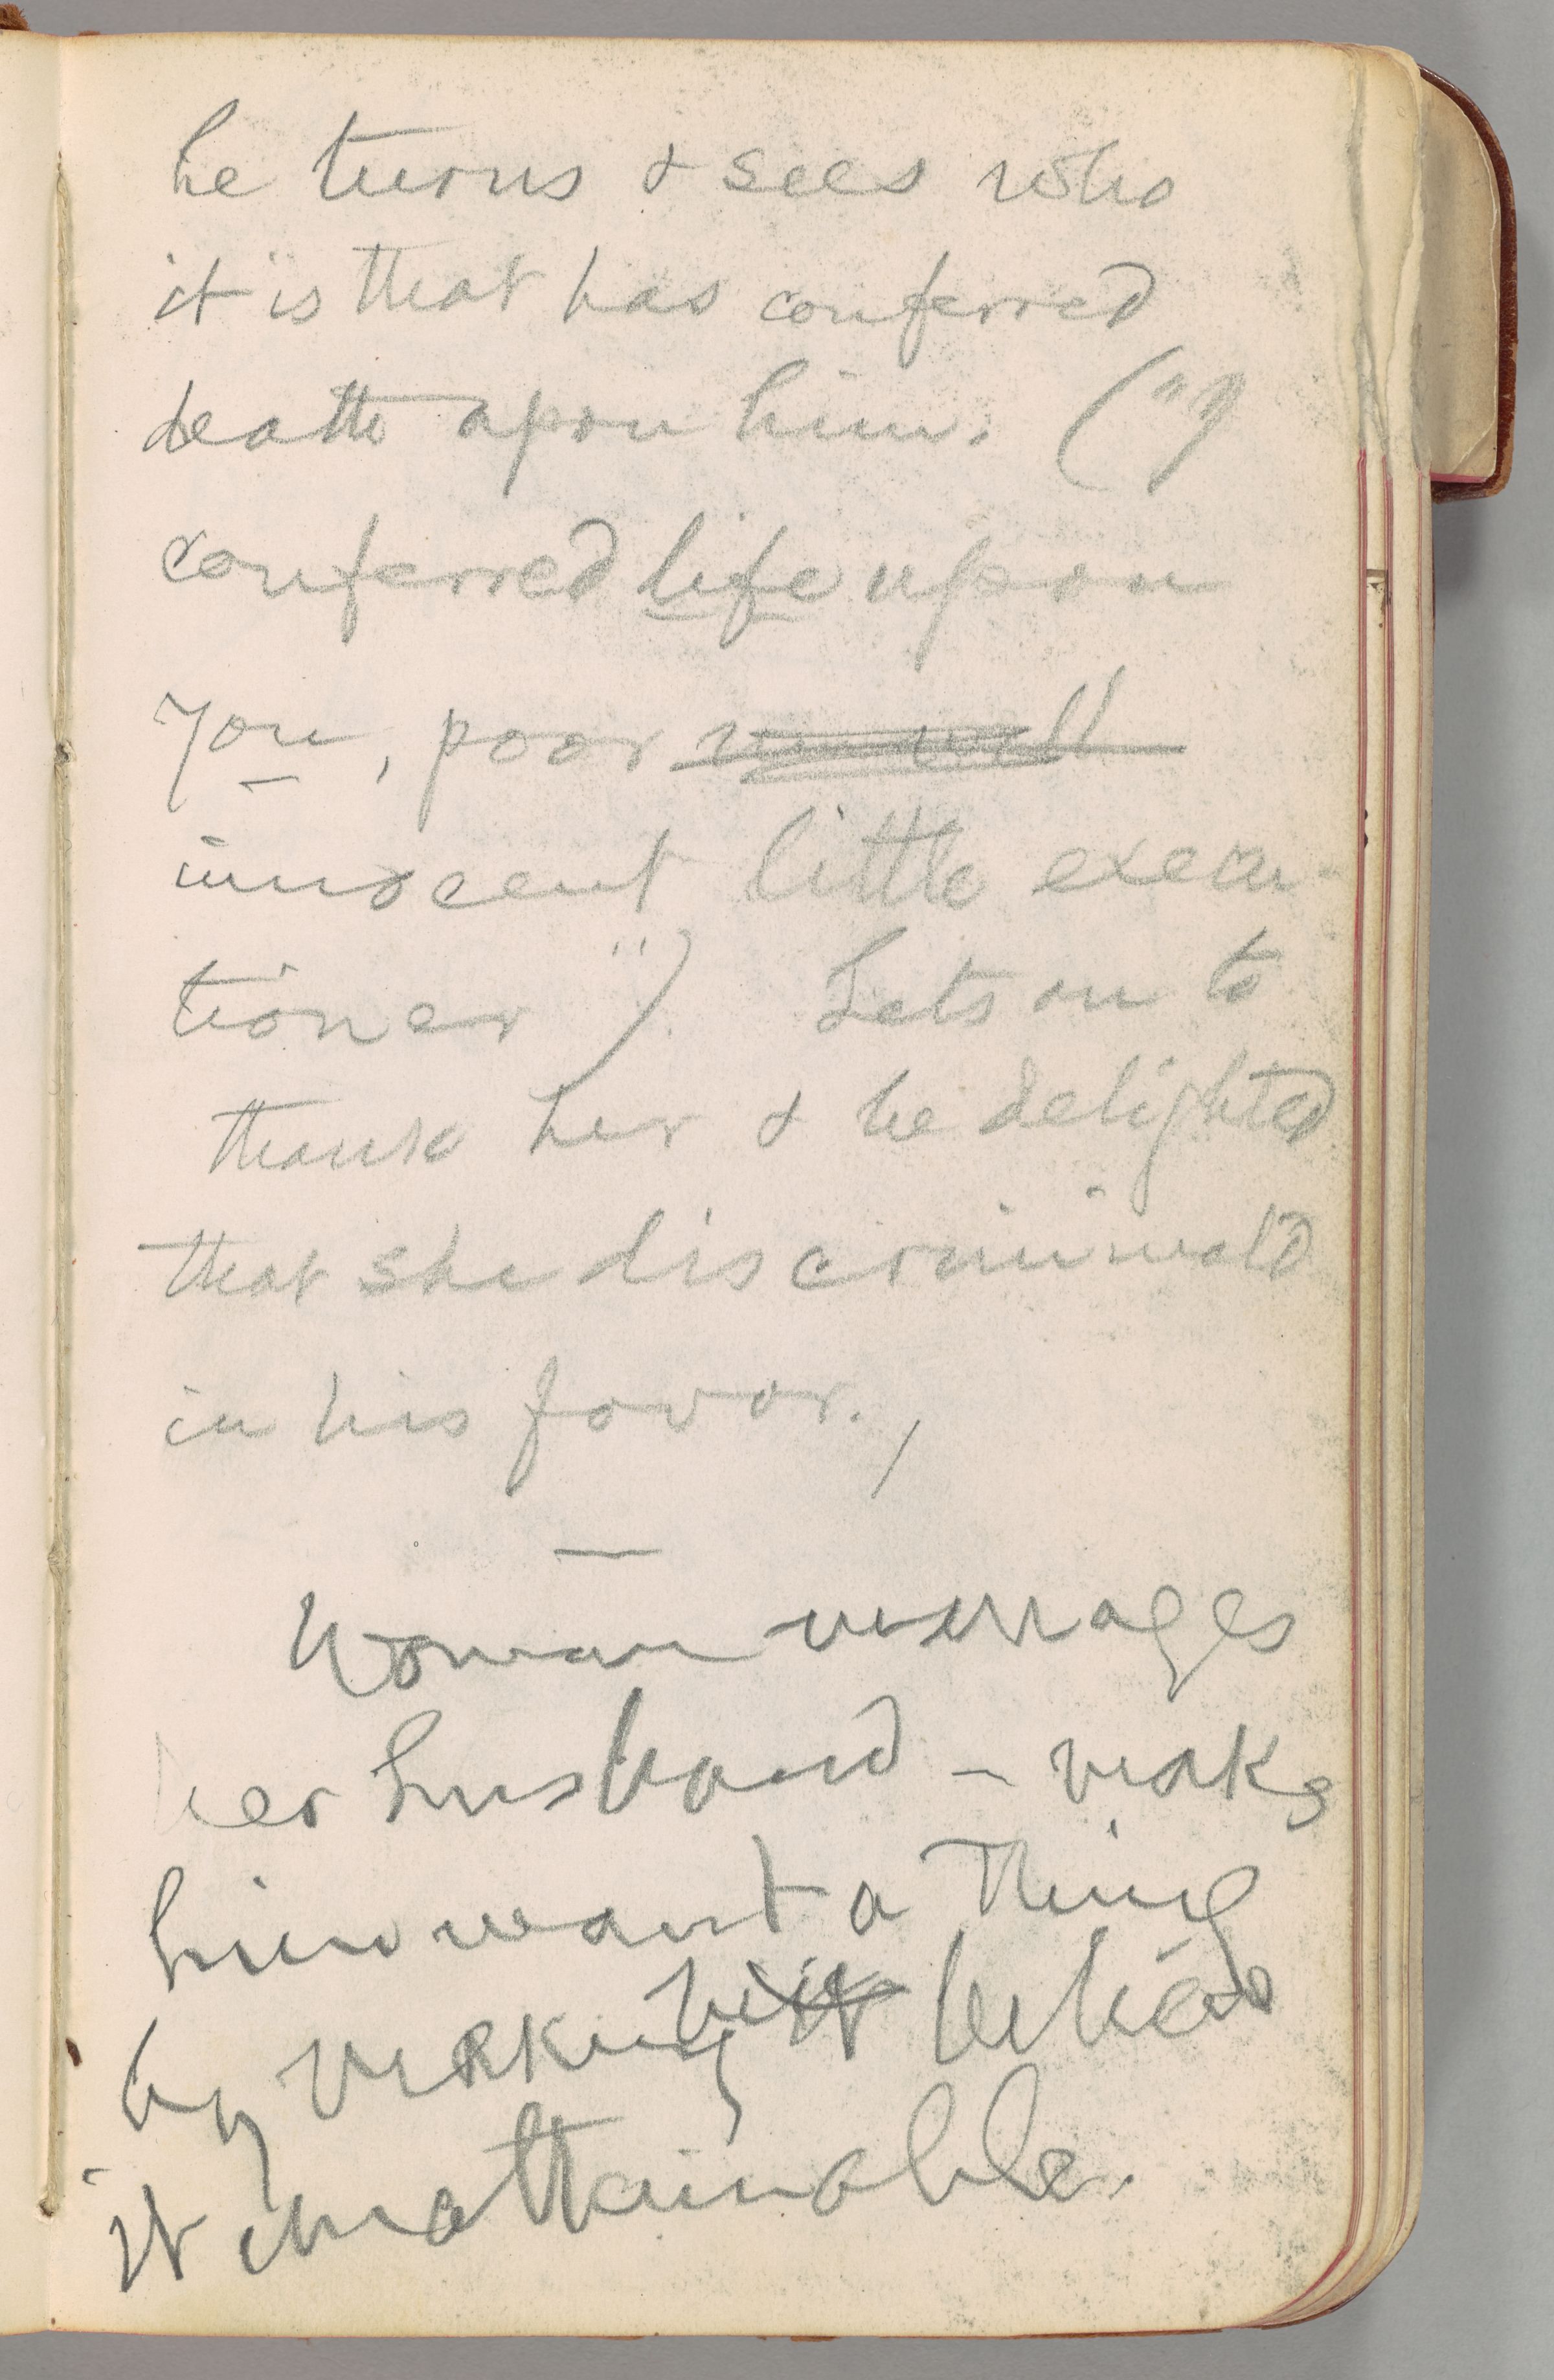 he turns & sees who
it is that has conferred
death upon him. ("I
conferred life upon
you, poor
innocent little execu-
tioner") Lets on to
thank her & be delighted
that she discriminat'd
in his favor.
—
Woman manages
her husband — makes
him want a thing
by making him believe
it unattainable.